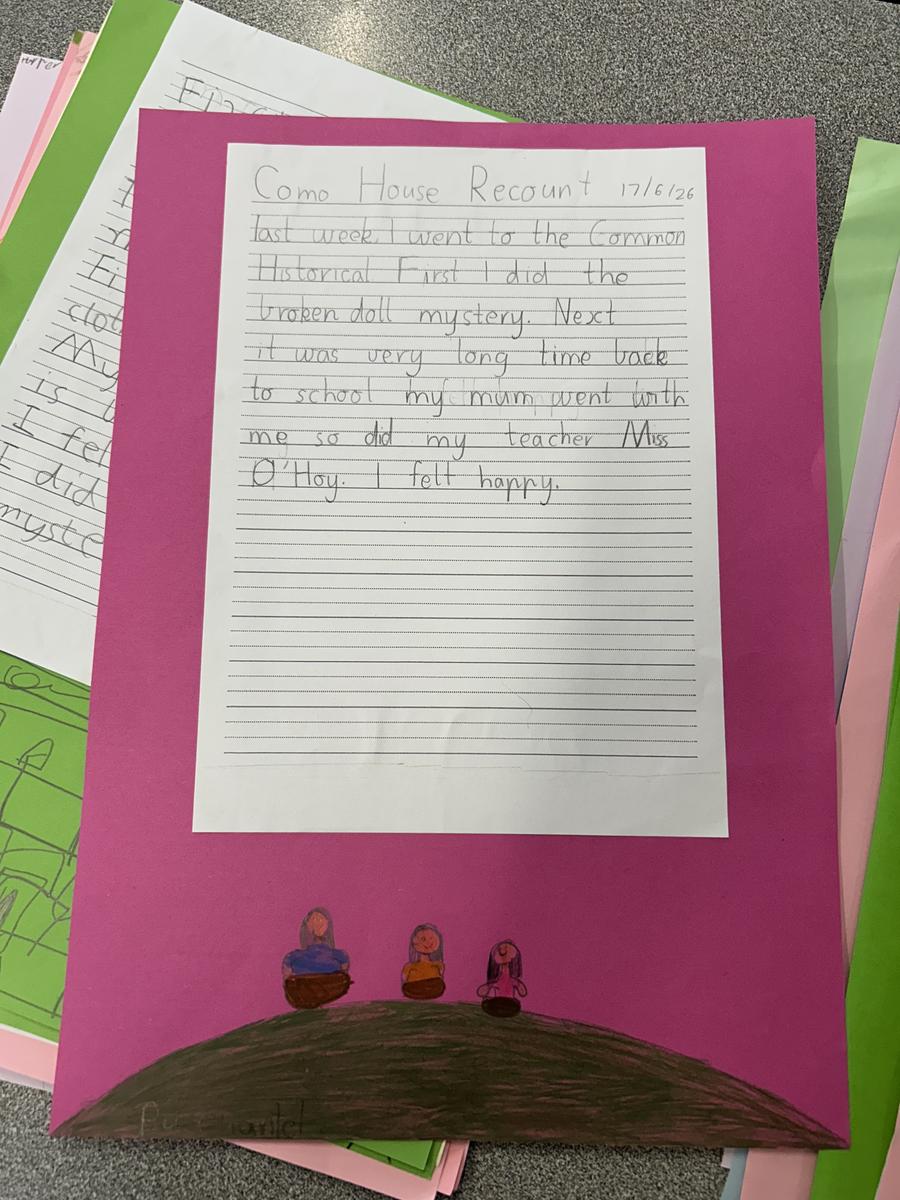 Como House Recount 17/6/26
last week I went to the Common
Historical First I did the
broken doll mystery. Next
it was very long time back
to school my mum went with
me so did my teacher Miss
O'Hoy. I felt happy.
clot
My
is
I fel
I did
myste